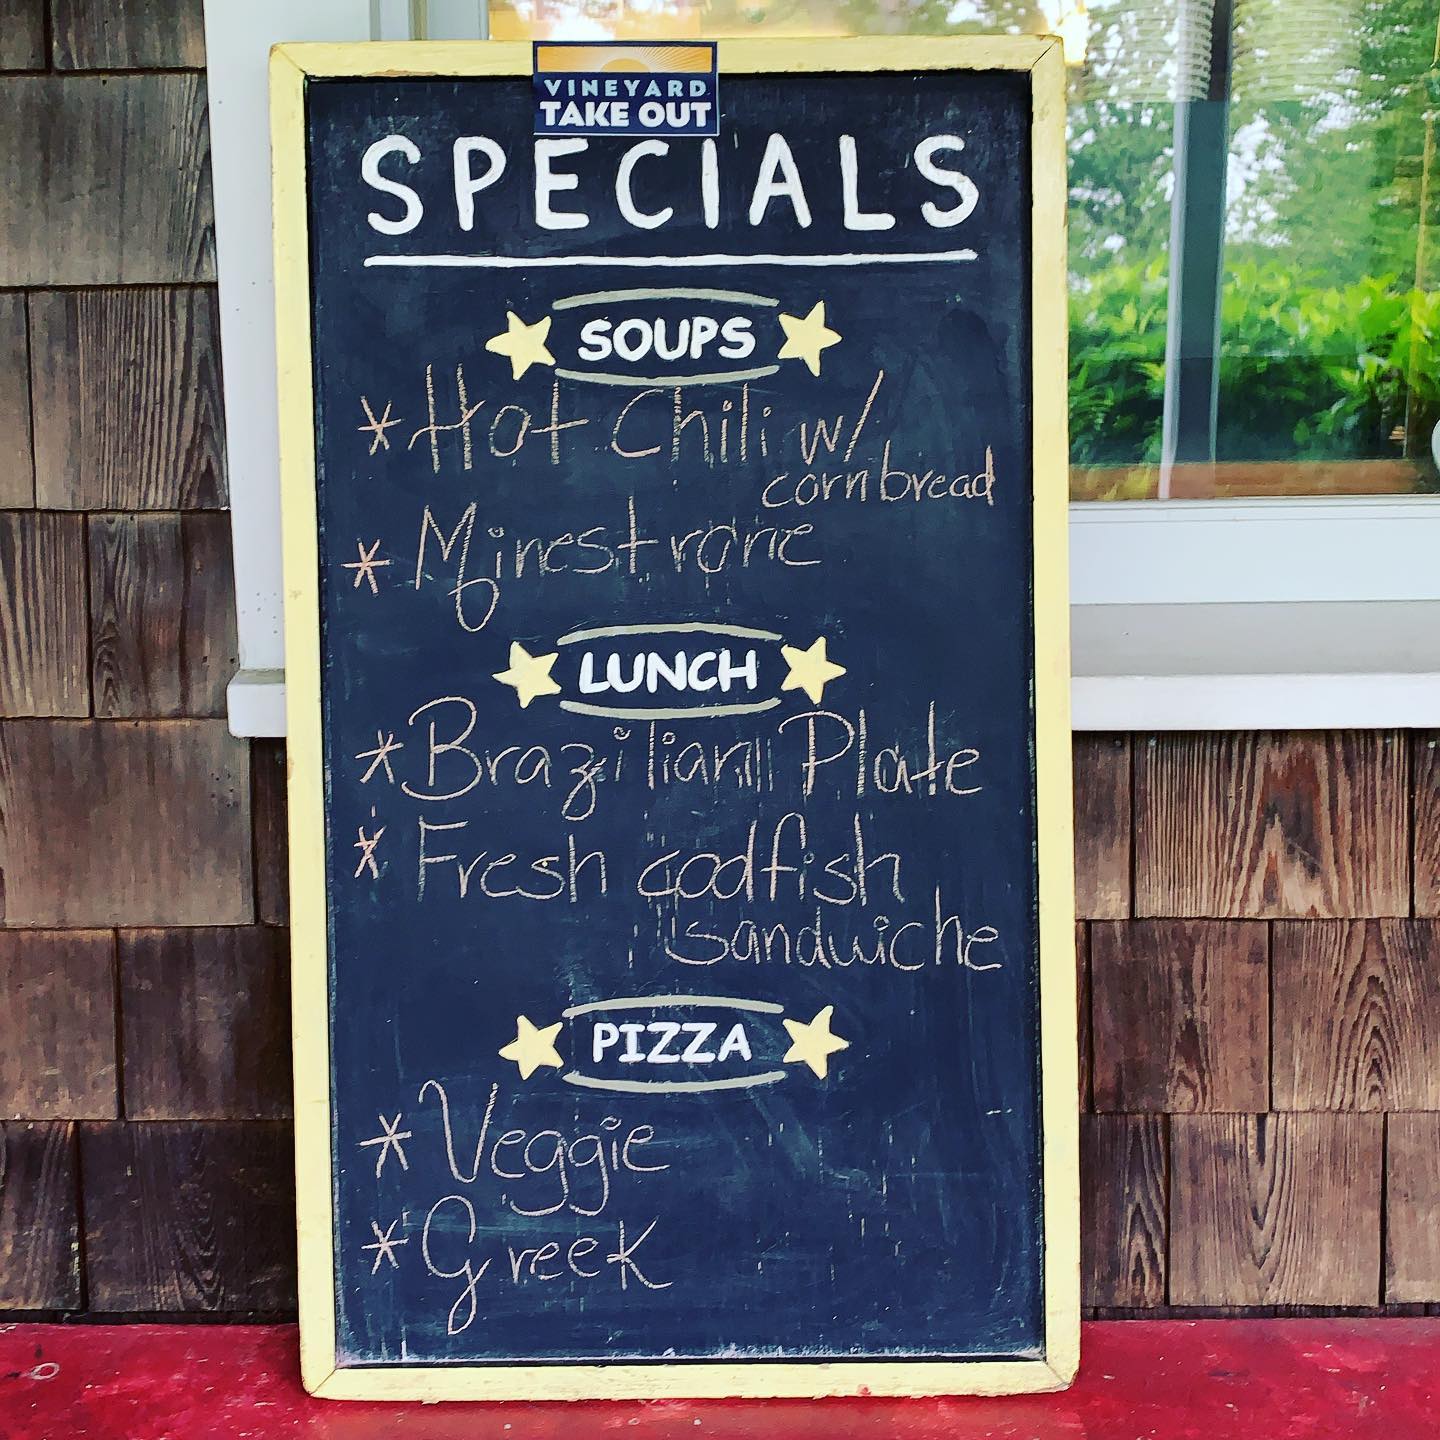 VINEYARD
TAKE OUT
SPECIALS
SOUPS
* Hot Chili w/
cornbread
* Minestrone
LUNCH
* Brazilian Plate
* Fresh codfish
sandwiche
PIZZA
* Veggie
* Greek